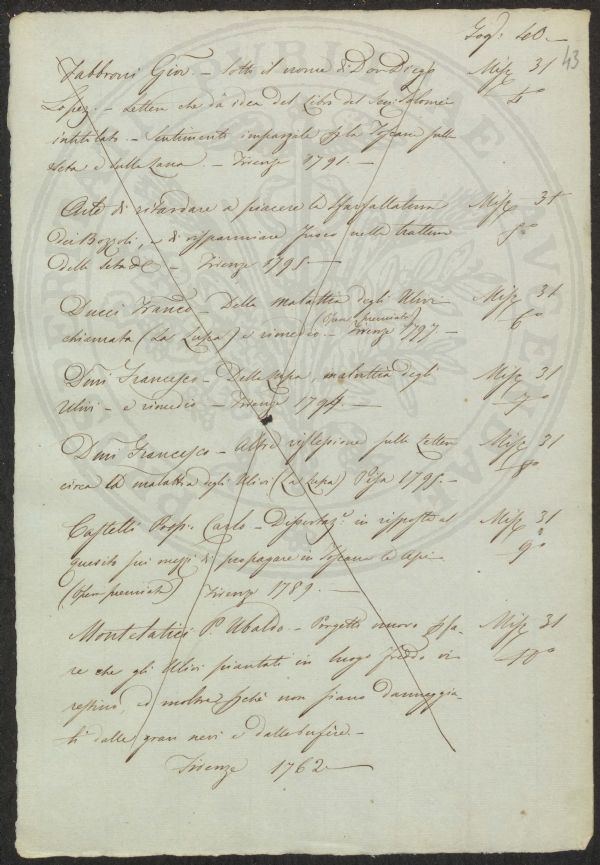 Fog: 40.—
43
Fabbroni Giov. — Sotto il nome di Don Diego Misc 31
Lopez. — Lettera che dà idea del Libro del 4°
intitolato. — Sentimento imparziale p la Toscana sulla
Seta e sulla Lana. — Firenze 1791.—
Arte di ritardare a piacere la sfarfallatura Misc 31
dei Bozzoli, e di risparmiare fuoco nella trattura 5°
della Seta &c — Firenze 1795—
Ducci Franco — Della malattia degli Ulivi Misc 31
chiamata (La Lupa) e rimedio — (Opera premiata) Firenze 1797.— 6°
Dini Francesco — Della Lupa, malattia degli Misc 31
Ulivi — e rimedio — Firenze 1794.— 7°
Dini Francesco — Altre riflessione sulla Lettera Misc 31
circa la malattia degli Ulivi (La Lupa) Pisa 1795.— 8°
Castelli Carlo — Dissertaz.e in risposta al Misc 31
quesito sui mezzi di propagare in Toscana le Api— 9°
(Opera premiata) Firenze 1789.—
Montelatici P. Ubaldo — Progetto nuovo p fa- Misc 31
re che gli Ulivi piantati in luogo freddo vi 10°
restino, ed inoltre pchè non siano danneggia-
ti dalle gran nevi e dalle bufere.—
Firenze 1762.—